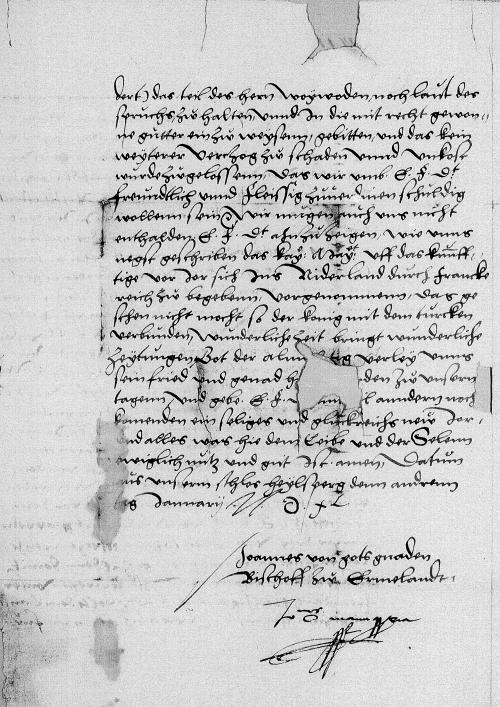 dert) das teil des hern woywoden noch laut des
spruchs zw halten vnnd Jn die mit recht gewon=
ne gutter ein zw weysenn, gebitten, vnd das kein
weyterer verczog zw schaden vnnd vnkost
wurde zugelossenn, Das wir vmb E. F. Dt
freundlich vnnd fleissig zuuerdinen schuldig
wollenn sein, Wir mugen auch vns nicht
enthalden E. F. Dt ahnzuzeigen, wie vnns
negst geschriben das kay: May: vff das kunff=
tige vor Jor sich Jns Niderland durch Francke
reich zw begebenn, vorgenommenn, das ge
schen nicht mocht so der konig mit dem turcken
verbunden, wunderliche zeit bringt wunderliche
zeytungen Got der alm verley vnns
sein fried vnd genad den zw vnsern
tagenn vnd gebe E. F. andern noch
komenden ein seliges vnd gluckreichs new Jor,
vnd alles was hie dem Leibe vnd der Selenn
ewiglich nutz vnd gut Jst amen Datum
aus vnserm schlos heylsperg denn andrenn
tag Januarij D. XL
Joannes von gots gnaden
Bischoff zw Ermelandt
manu ppria